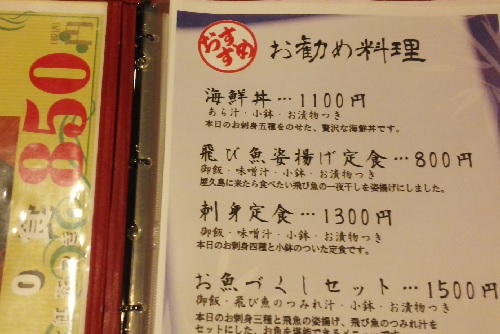 850
円
0
おすすめ
お勧め料理
海鮮丼…1100円
あら汁・小鉢・お漬物つき
本日のお刺身五種をのせた、贅沢な海鮮丼です。
飛び魚姿揚げ定食…800円
御飯・味噌汁・小鉢・お漬物つき
屋久島に来たら食べたい飛び魚の一夜干しを姿揚げにしました。
刺身定食…1300円
御飯・味噌汁・小鉢・お漬物つき
本日のお刺身四種と小鉢のついた定食です。
お魚づくしセット…1500円
御飯・飛び魚のつみれ汁・小鉢・お漬物つき
本日のお刺身三種と飛魚の姿揚げ、飛び魚のつみれ汁を
セットにした、お魚を堪能できる